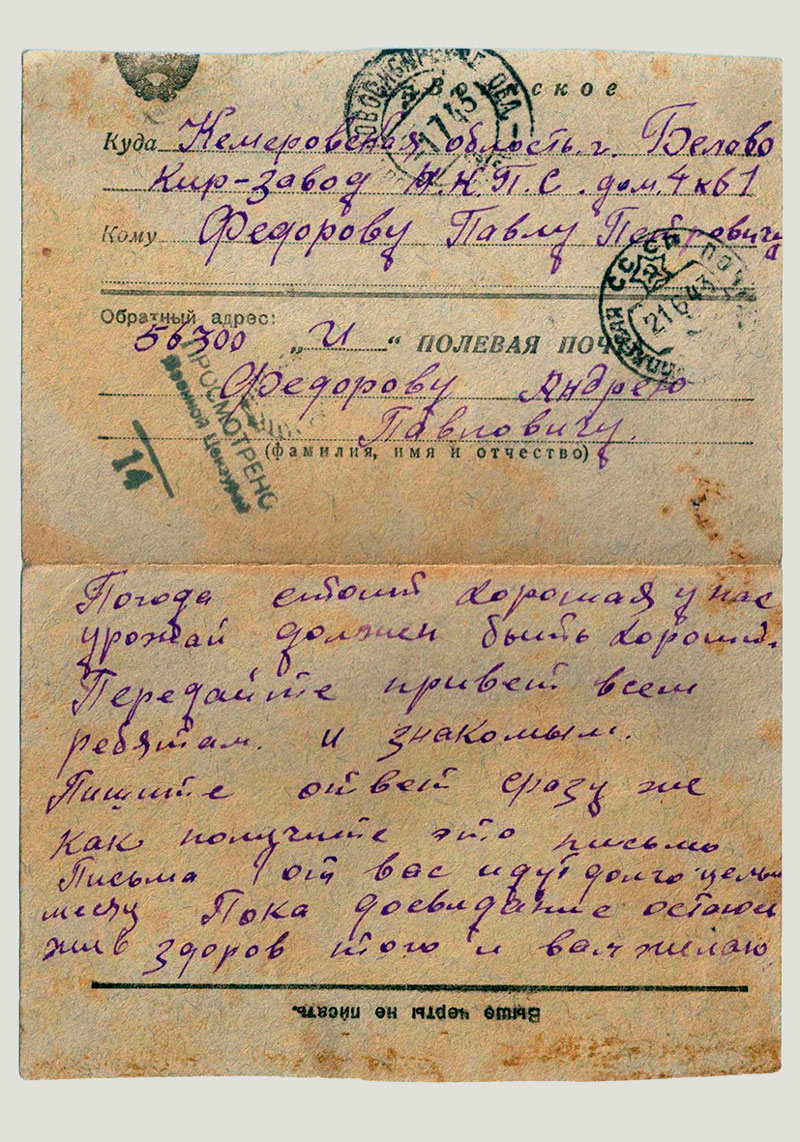 Воинское
Куда Кемеровская область. г. Белово
Кир-завод Н.К.П.С. дом. 4 кв 1
Кому Федорову Павлу Петровичу
Обратный адрес:
56700 „И“ ПОЛЕВАЯ ПОЧ
Федорову Андрею
Павловичу.
(фамилия, имя и отчество)
ПРОСМОТРЕНО
Военной Цензурой
14
21 6 43
1 7 43
СССР
Погода стоит хорошая у нас
урожай должен быть хороший.
Передайте привет всем
ребятам. и знакомым.
Пишите ответ сразу же
как получите это письмо
Письма от вас идут долго целый
месяц Пока досвидание остаюсь
жив здоров того и вам желаю
Выше черты не писать.